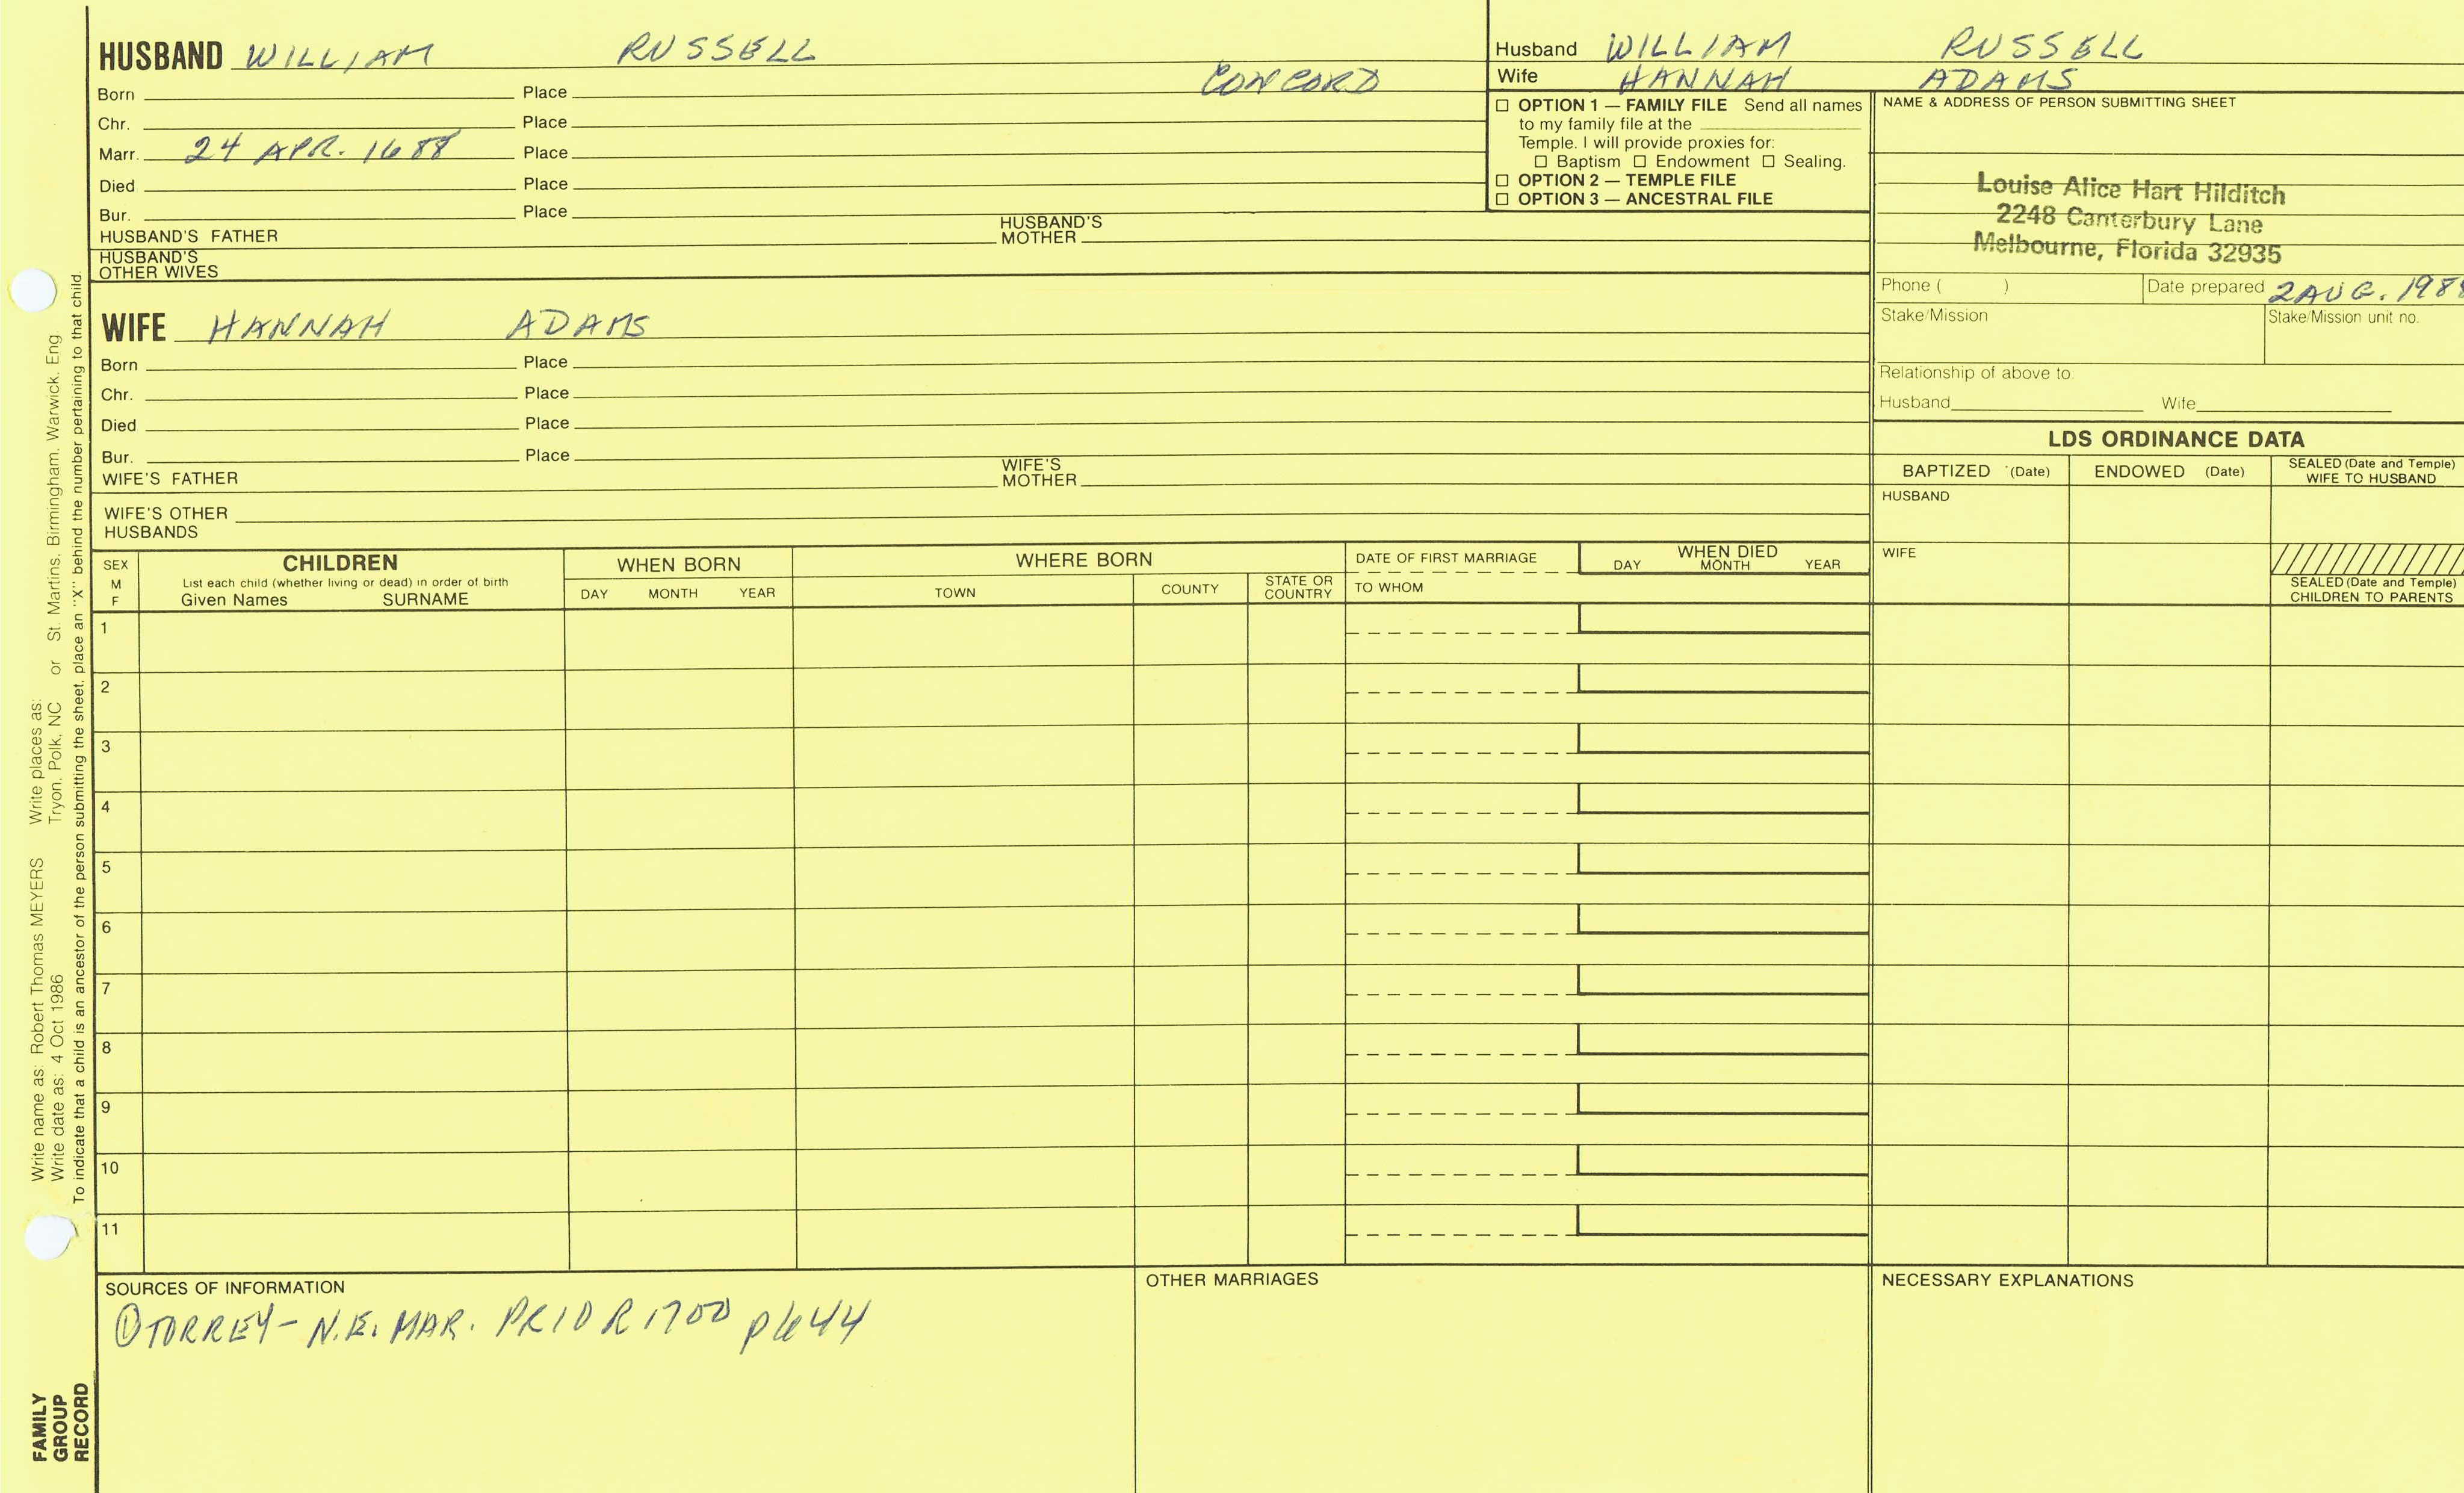 HUSBAND WILLIAM RUSSELL
CONCORD
Born Place
Chr. Place
Marr. 24 APR. 1688 Place
Died Place
Bur. Place
HUSBAND'S FATHER HUSBAND'S MOTHER
HUSBAND'S OTHER WIVES
WIFE HANNAH ADAMS
Born Place
Chr. Place
Died Place
Bur. Place
WIFE'S FATHER WIFE'S MOTHER
WIFE'S OTHER HUSBANDS
Husband WILLIAM RUSSELL
Wife HANNAH ADAMS
☐ OPTION 1 — FAMILY FILE Send all names
to my family file at the
Temple. I will provide proxies for:
☐ Baptism ☐ Endowment ☐ Sealing.
☐ OPTION 2 — TEMPLE FILE
☐ OPTION 3 — ANCESTRAL FILE
NAME & ADDRESS OF PERSON SUBMITTING SHEET
Louise Alice Hart Hilditch
2248 Canterbury Lane
Melbourne, Florida 32935
Phone ( ) Date prepared 2 AUG. 1988
Stake/Mission Stake/Mission unit no.
Relationship of above to:
Husband Wife
LDS ORDINANCE DATA
BAPTIZED (Date) ENDOWED (Date) SEALED (Date and Temple) WIFE TO HUSBAND
HUSBAND
WIFE
SEALED (Date and Temple)
CHILDREN TO PARENTS
SEX M F
CHILDREN
List each child (whether living or dead) in order of birth
Given Names SURNAME
WHEN BORN
DAY MONTH YEAR
WHERE BORN
TOWN COUNTY STATE OR COUNTRY
DATE OF FIRST MARRIAGE
TO WHOM
WHEN DIED
DAY MONTH YEAR
1
2
3
4
5
6
7
8
9
10
11
SOURCES OF INFORMATION
① TORREY - N.E. MAR. PRIOR 1700 p644
OTHER MARRIAGES
NECESSARY EXPLANATIONS
Write name as: Robert Thomas MEYERS Write places as:
Write date as: 4 Oct 1986 Tryon, Polk, NC or St. Martins, Birmingham, Warwick, Eng
To indicate that a child is an ancestor of the person submitting the sheet, place an "X" behind the number pertaining to that child.
FAMILY
GROUP
RECORD